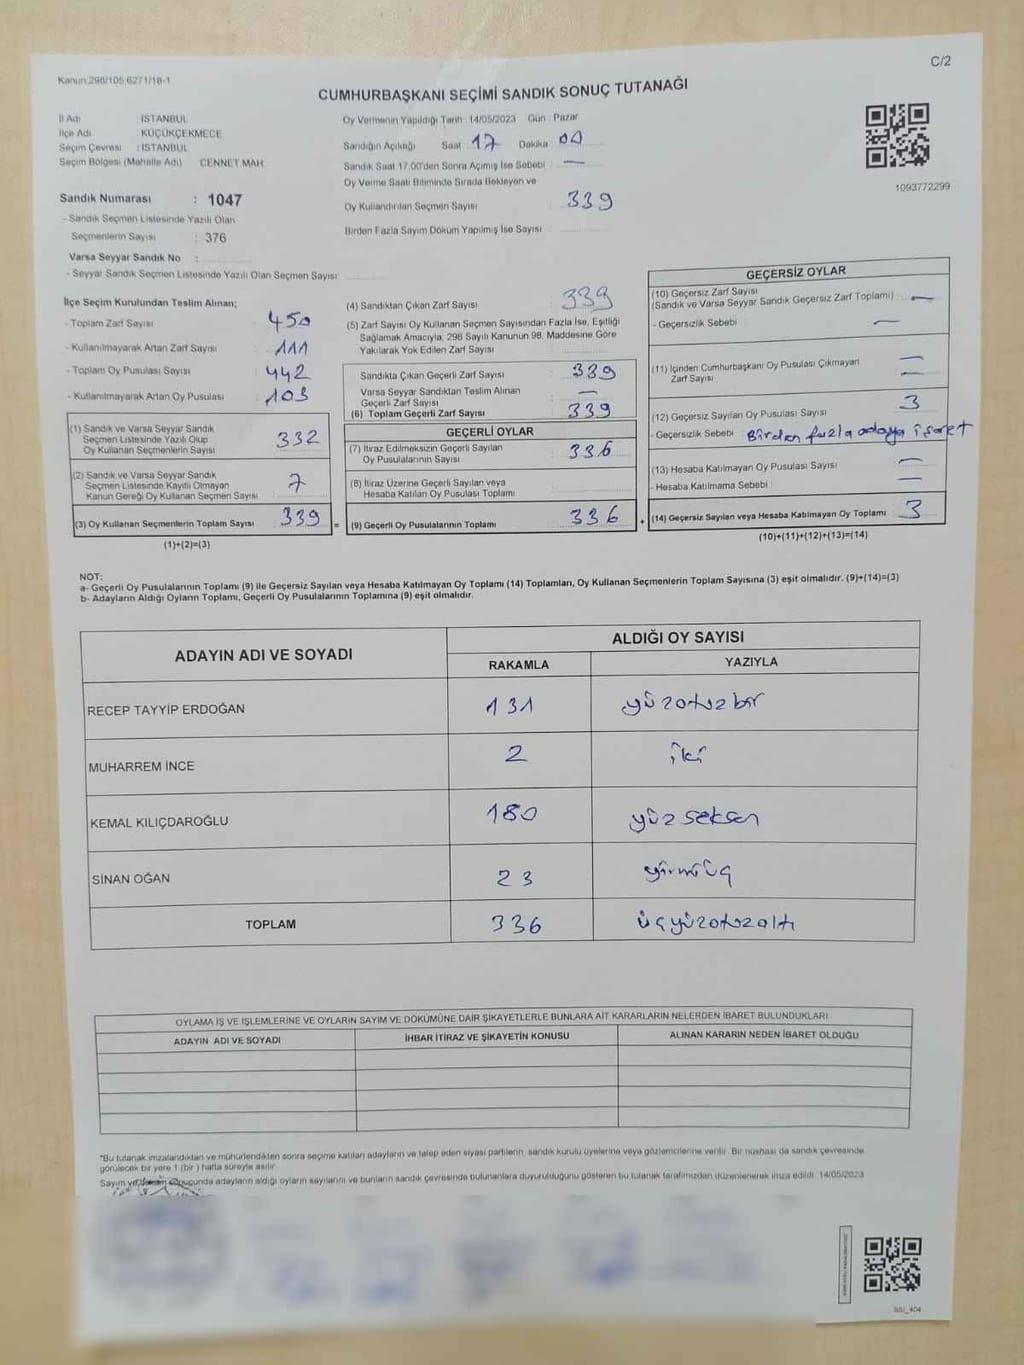 C/2
Kanun:298/105,6271/18-1
CUMHURBAŞKANI SEÇİMİ SANDIK SONUÇ TUTANAĞI
İl Adı : İSTANBUL
İlçe Adı KÜÇÜKÇEKMECE
Seçim Çevresi : İSTANBUL
Seçim Bölgesi (Mahalle Adı) CENNET MAH.
Sandık Numarası : 1047
- Sandık Seçmen Listesinde Yazılı Olan
Seçmenlerin Sayısı : 376
Varsa Seyyar Sandık No :
- Seyyar Sandık Seçmen Listesinde Yazılı Olan Seçmen Sayısı:
Oy Vermenin Yapıldığı Tarih : 14/05/2023 Gün : Pazar
Sandığın Açıldığı Saat 17 Dakika 00
Sandık Saat 17.00'den Sonra Açılmış İse Sebebi : —
Oy Verme Saati Bitiminde Sırada Bekleyen ve
Oy Kullandırılan Seçmen Sayısı : 339
Birden Fazla Sayım Döküm Yapılmış İse Sayısı :
1093772299
İlçe Seçim Kurulundan Teslim Alınan;
- Toplam Zarf Sayısı : 450
- Kullanılmayarak Artan Zarf Sayısı : 111
- Toplam Oy Pusulası Sayısı : 442
- Kullanılmayarak Artan Oy Pusulası : 103
(1) Sandık ve Varsa Seyyar Sandık
Seçmen Listesinde Yazılı Olup
Oy Kullanan Seçmenlerin Sayısı : 332
(2) Sandık ve Varsa Seyyar Sandık
Seçmen Listesinde Kayıtlı Olmayan
Kanun Gereği Oy Kullanan Seçmen Sayısı : 7
(3) Oy Kullanan Seçmenlerin Toplam Sayısı : 339 =
(1)+(2)=(3)
(4) Sandıktan Çıkan Zarf Sayısı : 339
(5) Zarf Sayısı Oy Kullanan Seçmen Sayısından Fazla İse, Eşitliği
Sağlamak Amacıyla, 298 Sayılı Kanunun 98. Maddesine Göre
Yakılarak Yok Edilen Zarf Sayısı :
Sandıkta Çıkan Geçerli Zarf Sayısı : 339
Varsa Seyyar Sandıktan Teslim Alınan
Geçerli Zarf Sayısı : —
(6) Toplam Geçerli Zarf Sayısı : 339
GEÇERLİ OYLAR
(7) İtiraz Edilmeksizin Geçerli Sayılan
Oy Pusulalarının Sayısı : 336
(8) İtiraz Üzerine Geçerli Sayılan veya
Hesaba Katılan Oy Pusulası Toplamı :
(9) Geçerli Oy Pusulalarının Toplamı : 336 +
GEÇERSİZ OYLAR
(10) Geçersiz Zarf Sayısı
(Sandık ve Varsa Seyyar Sandık Geçersiz Zarf Toplamı) : —
- Geçersizlik Sebebi : —
(11) İçinden Cumhurbaşkanı Oy Pusulası Çıkmayan
Zarf Sayısı : —
(12) Geçersiz Sayılan Oy Pusulası Sayısı : 3
- Geçersizlik Sebebi : Birden fazla adaya işaret
(13) Hesaba Katılmayan Oy Pusulası Sayısı : —
- Hesaba Katılmama Sebebi : —
(14) Geçersiz Sayılan veya Hesaba Katılmayan Oy Toplamı : 3
(10)+(11)+(12)+(13)=(14)
NOT:
a- Geçerli Oy Pusulalarının Toplamı (9) ile Geçersiz Sayılan veya Hesaba Katılmayan Oy Toplamı (14) Toplamları, Oy Kullanan Seçmenlerin Toplam Sayısına (3) eşit olmalıdır. (9)+(14)=(3)
b- Adayların Aldığı Oyların Toplamı, Geçerli Oy Pusulalarının Toplamına (9) eşit olmalıdır.
ADAYIN ADI VE SOYADI
ALDIĞI OY SAYISI
RAKAMLA YAZIYLA
RECEP TAYYİP ERDOĞAN 131 yüzotuzbir
MUHARREM İNCE 2 iki
KEMAL KILIÇDAROĞLU 180 yüzseksen
SİNAN OĞAN 23 yirmiüç
TOPLAM 336 üçyüzotuzaltı
OYLAMA İŞ VE İŞLEMLERİNE VE OYLARIN SAYIM VE DÖKÜMÜNE DAİR ŞİKAYETLERLE BUNLARA AİT KARARLARIN NELERDEN İBARET BULUNDUKLARI
ADAYIN ADI VE SOYADI İHBAR İTİRAZ VE ŞİKAYETİN KONUSU ALINAN KARARIN NEDEN İBARET OLDUĞU
*Bu tutanak imzalandıktan ve mühürlendikten sonra seçime katılan adayların ve talep eden siyasi partilerin sandık kurulu üyelerine veya gözlemcilerine verilir. Bir nüshası da sandık çevresinde
görülecek bir yere 1 (bir ) hafta süreyle asılır.
Sayım ve sonucunda adayların aldığı oyların sayılarını ve bunların sandık çevresinde bulunanlara duyurulduğunu gösteren bu tutanak tarafımızdan düzenlenerek imza edildi. 14/05/2023
SSI_404